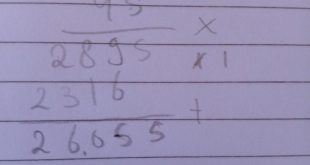 45
2895 ×
2316 × 1
26.055 +